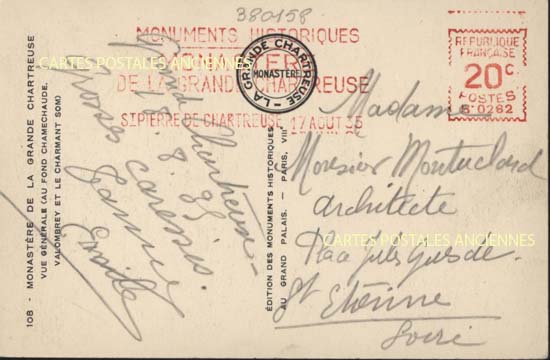 380158
MONUMENTS HISTORIQUES
DE LA GRANDE CHARTREUSE
ST PIERRE DE CHARTREUSE 17 AOUT 35
LA GRANDE CHARTREUSE
MONASTÈRE
REPUBLIQUE
FRANÇAISE
20c
POSTES
B*0262
108 - MONASTÈRE DE LA GRANDE CHARTREUSE
VUE GÉNÉRALE (AU FOND CHAMECHAUDE,
VALOMBREY ET LE CHARMANT SOM)
ÉDITION DES MONUMENTS HISTORIQUES
AU GRAND PALAIS. - PARIS, VIII
Grand Chartreuse
8. 35
Grosses caresses.
Madame
Monsieur Montuclard
architecte
Place Jules Guesde
St Etienne
Loire
CARTES POSTALES ANCIENNES
CARTES POSTALES ANCIENNES